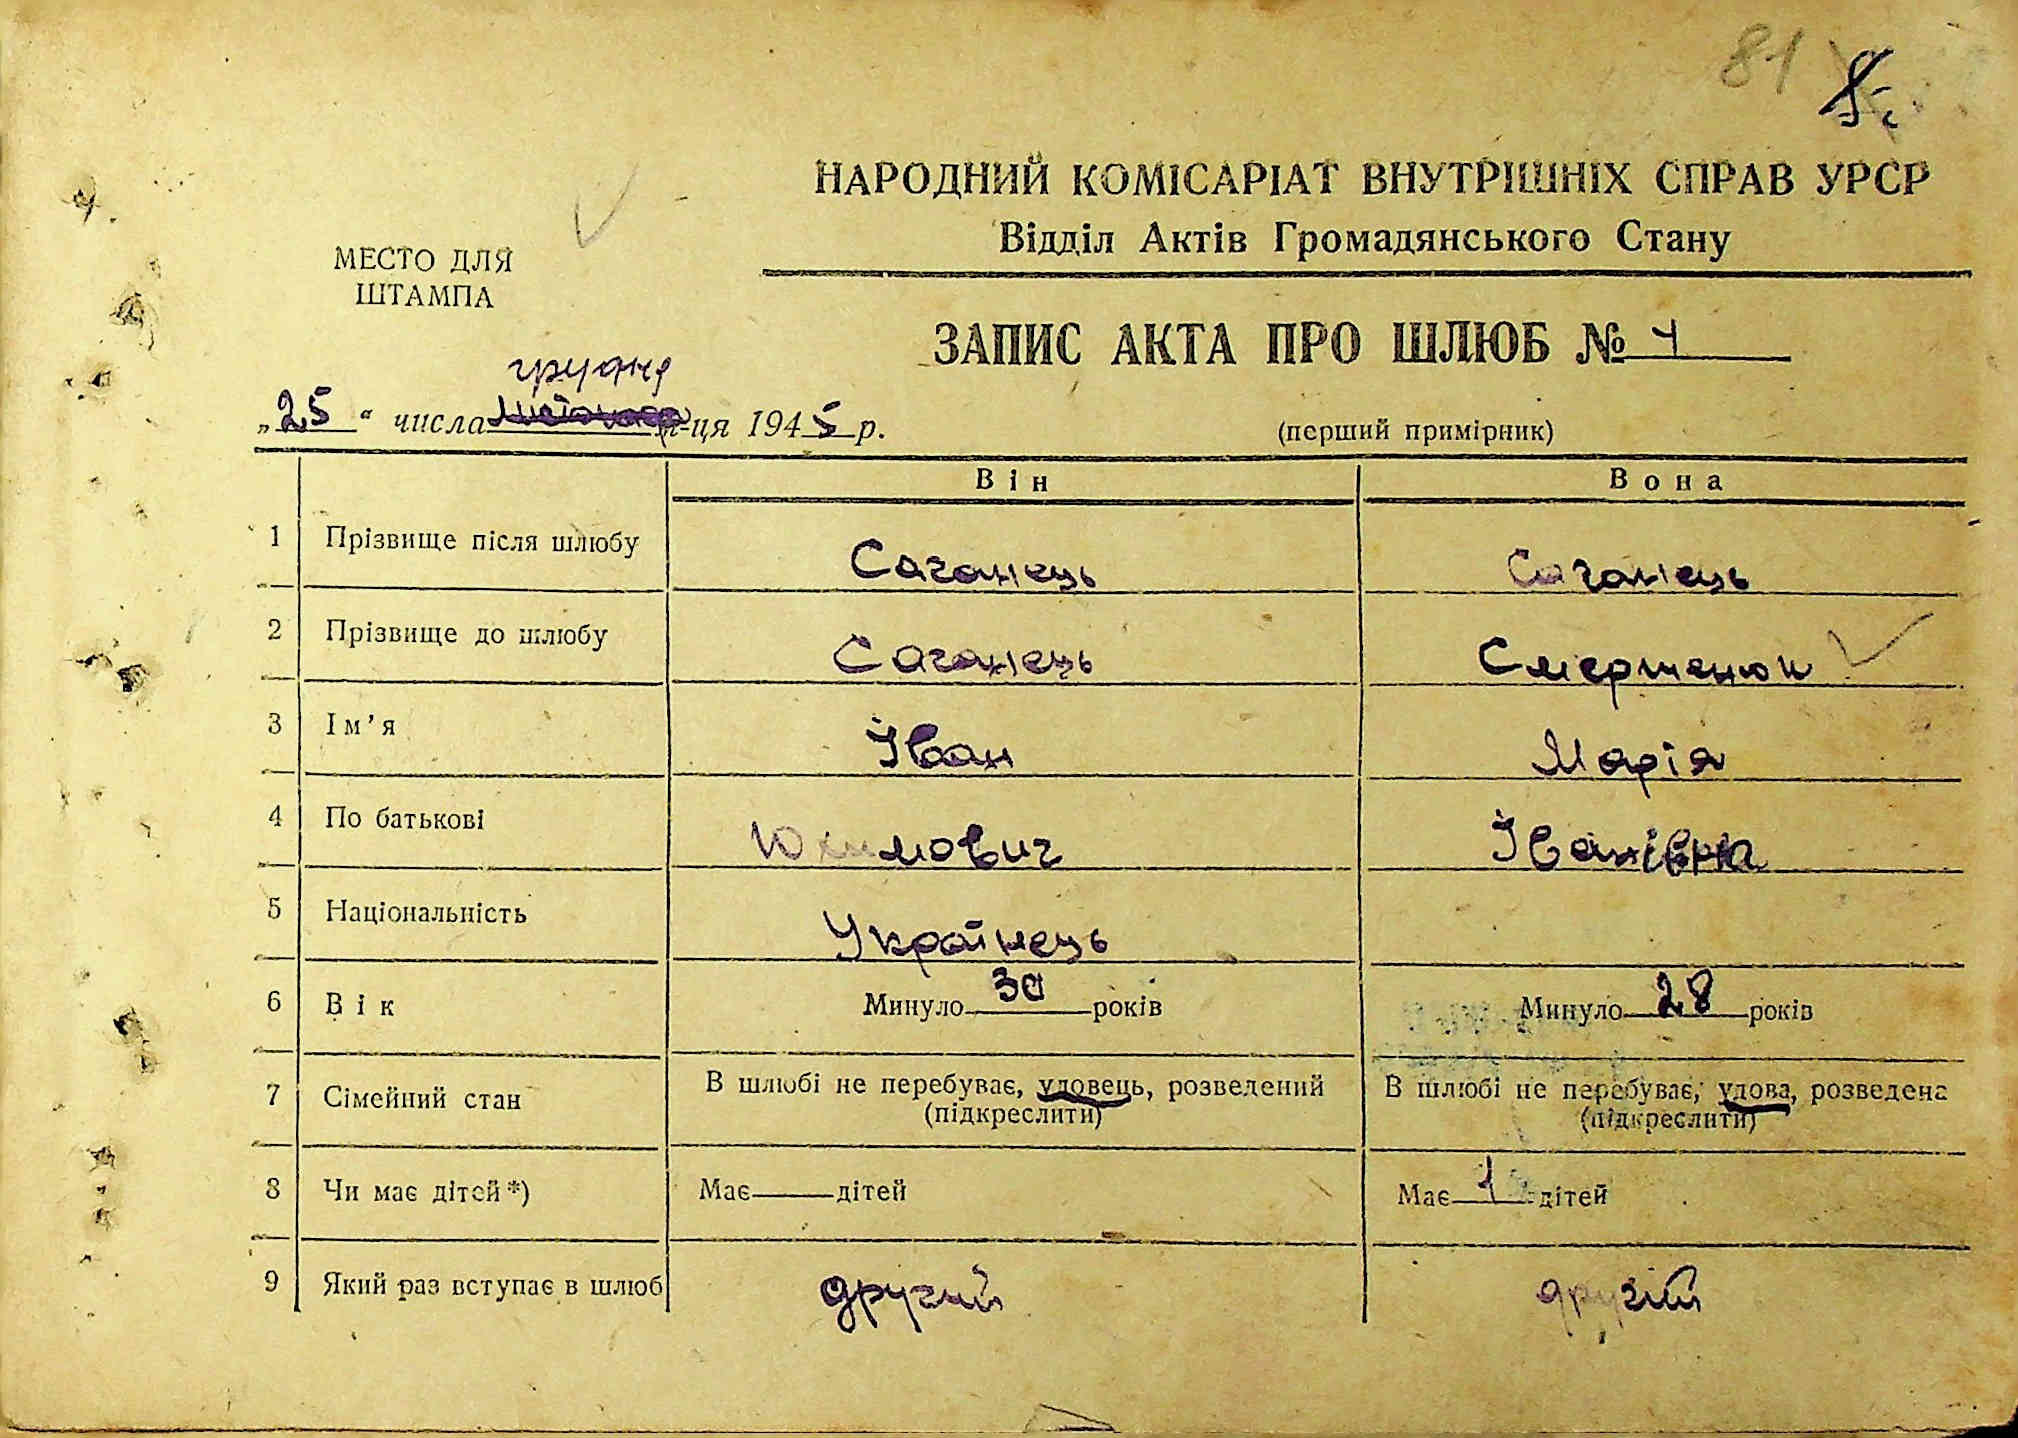 81
НАРОДНИЙ КОМІСАРІАТ ВНУТРІШНІХ СПРАВ УРСР
Відділ Актів Громадянського Стану
МЕСТО ДЛЯ
ШТАМПА
ЗАПИС АКТА ПРО ШЛЮБ № 4
грудня
„25“ числа м-ця 1945 р.
(перший примірник)
Він Вона
1 Прізвище після шлюбу Саганець Саганець
2 Прізвище до шлюбу Саганець Смерженюк
3 Ім’я Іван Марія
4 По батькові Юхимович Іванівна
5 Національність Українець
6 Вік Минуло 30 років Минуло 28 років
7 Сімейний стан В шлюбі не перебуває, удовець, розведений В шлюбі не перебуває, удова, розведена
(підкреслити) (підкреслити)
8 Чи має дітей*) Має дітей Має 1 дітей
9 Який раз вступає в шлюб другий другій